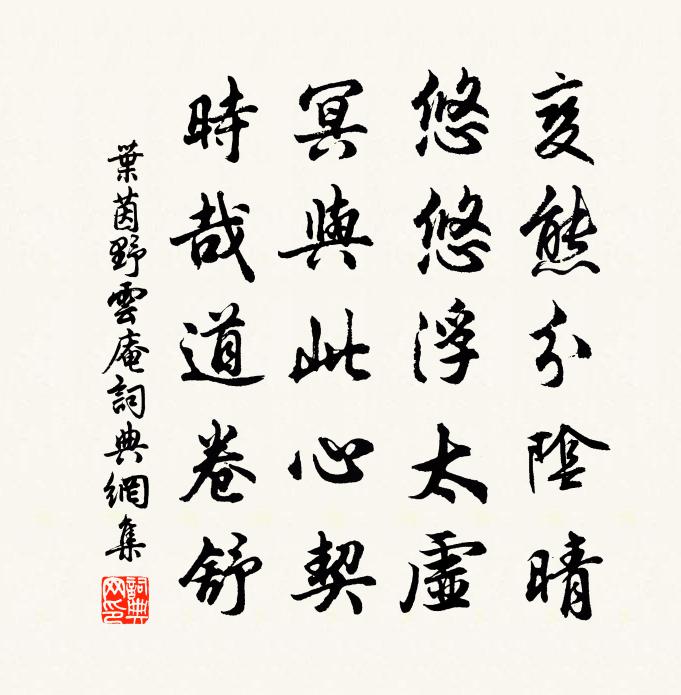 變態分陰晴
悠悠浮太虛
冥與此心契
時哉道卷舒
葉茵野雲庵詞典網集
詞典網印